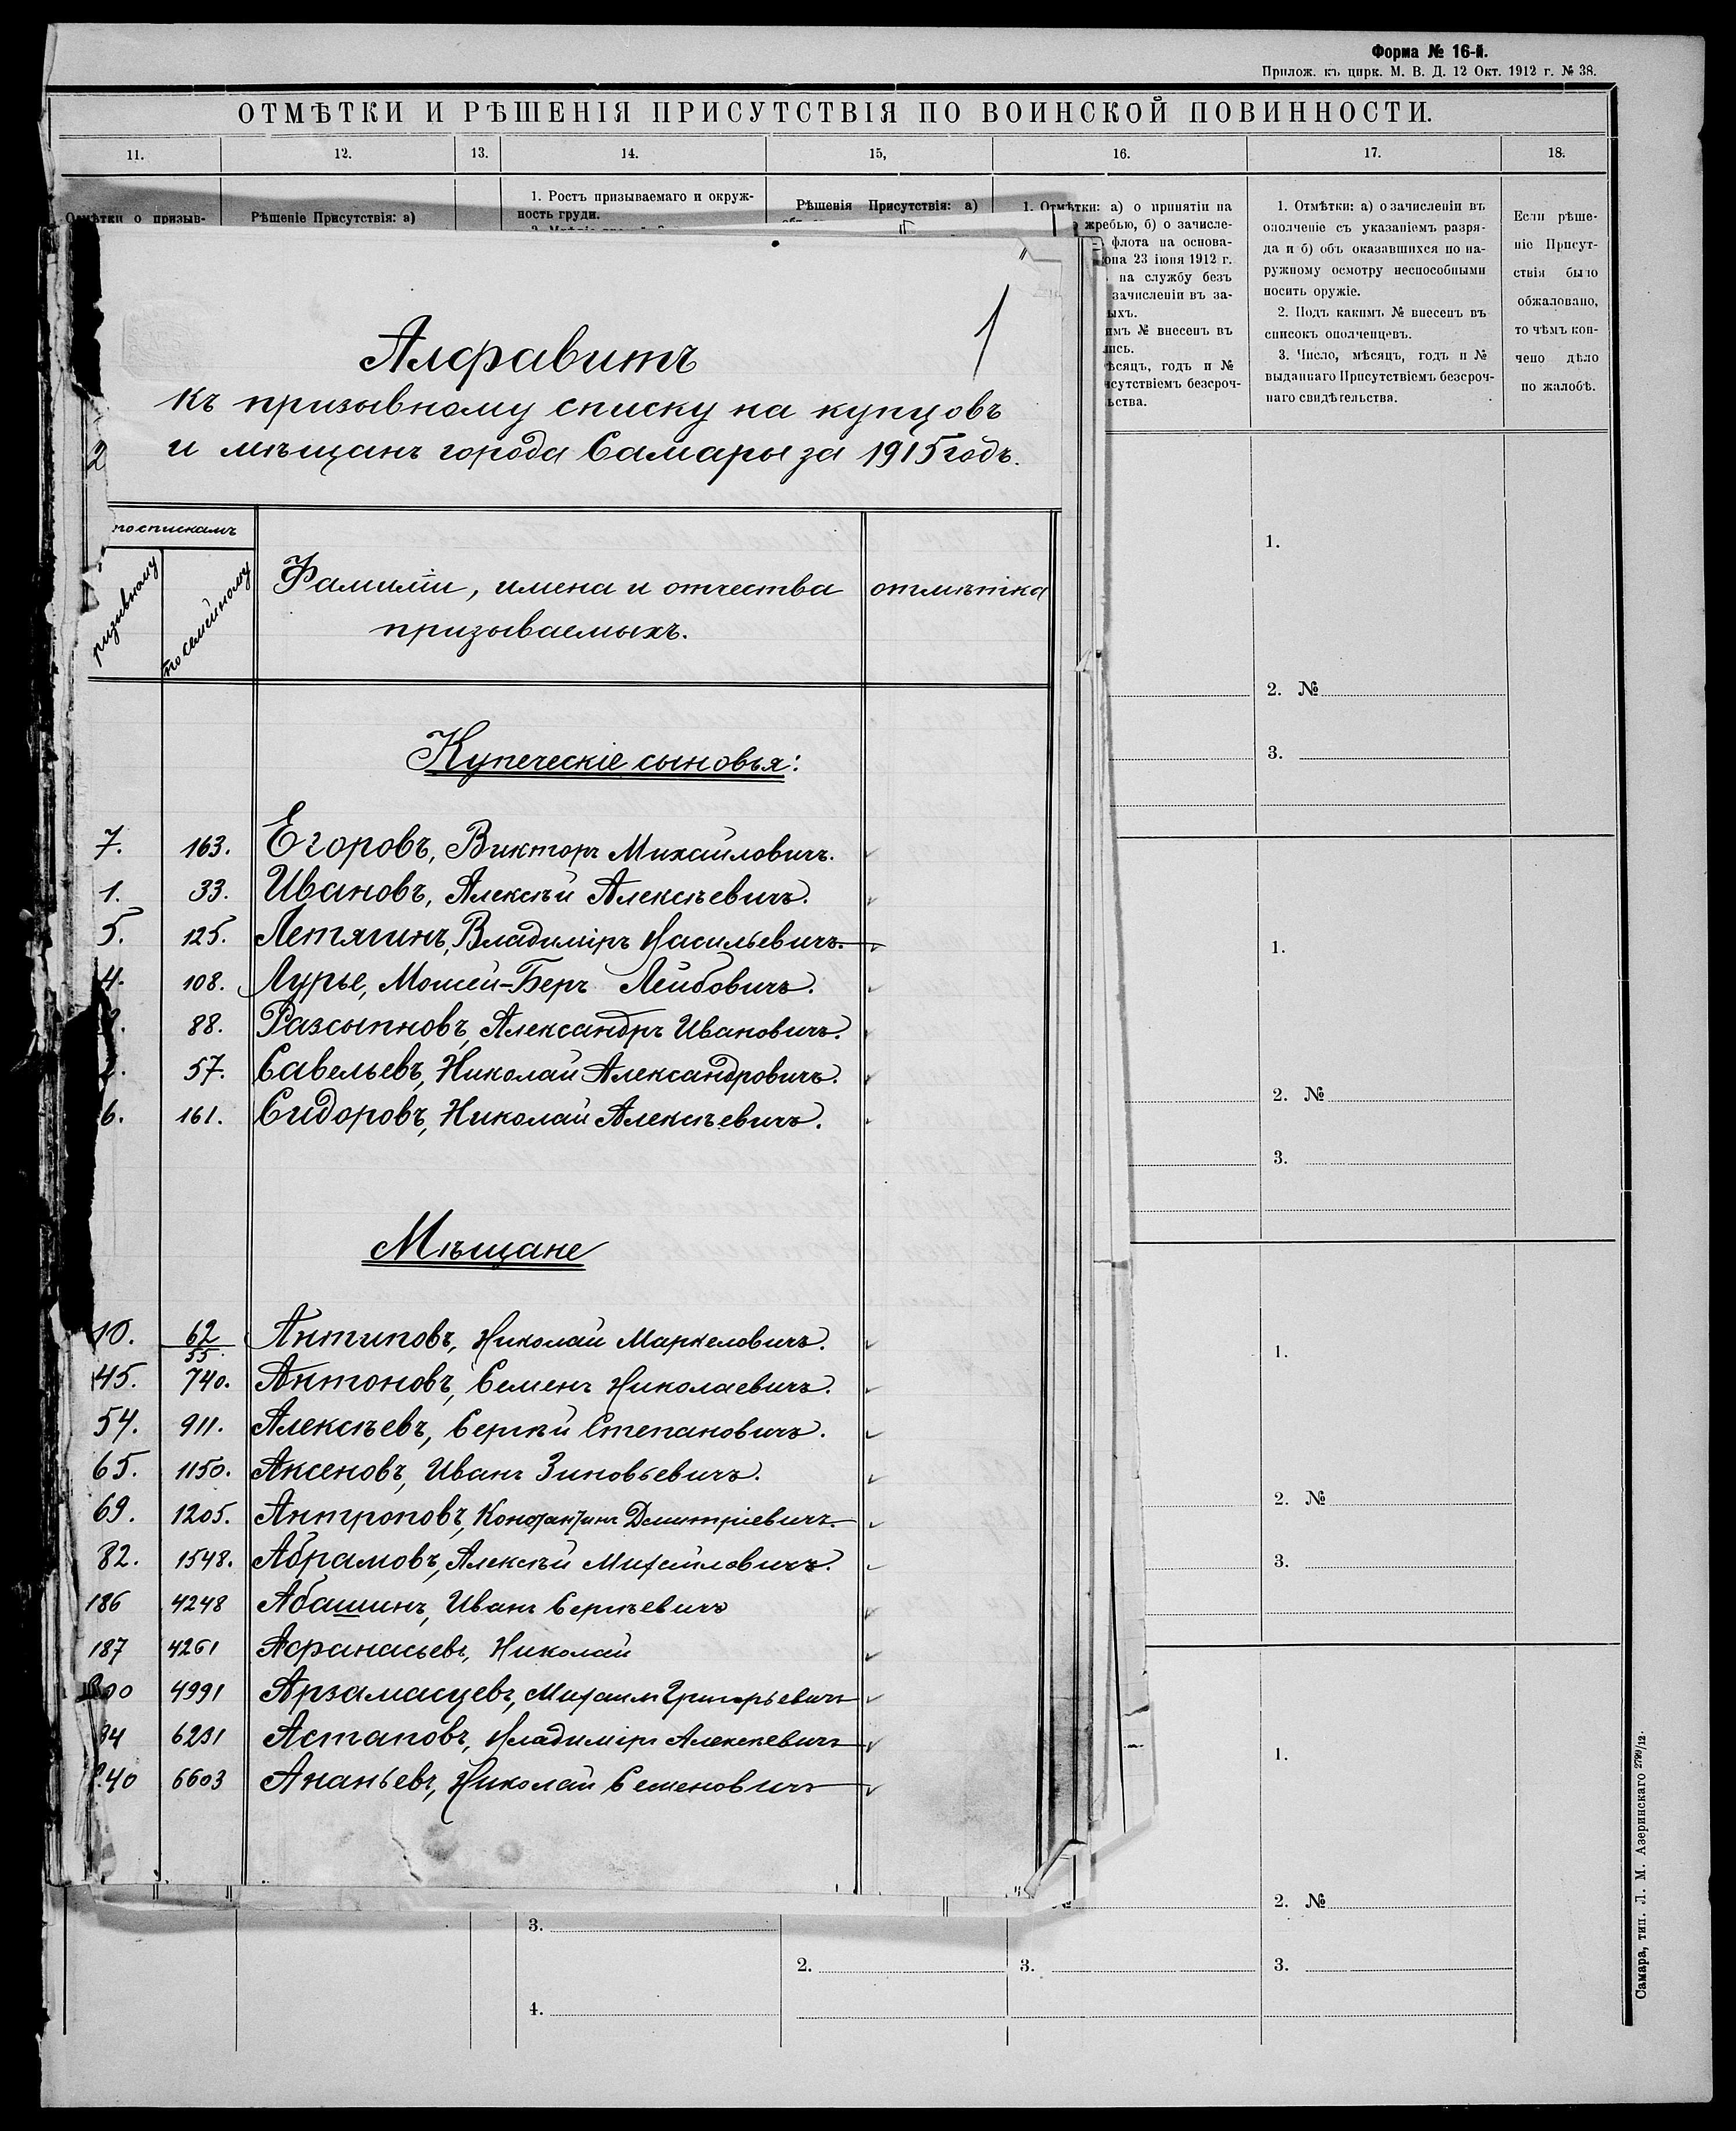 Форма № 16-й.
Прилож. къ цирк. М. В. Д. 12 Окт. 1912 г. № 38.
ОТМѢТКИ И РѢШЕНІЯ ПРИСУТСТВІЯ ПО ВОИНСКОЙ ПОВИННОСТИ.
11. 12. 13. 14. 15, 16. 17. 18.
Отмѣтки о призыв-
Рѣшеніе Присутствія: а)
1. Ростъ призываемаго и окруж-
ность груди.
Рѣшенія Присутствія: а)
1. Отмѣтки: а) о принятіи на
жребью, б) о зачисле-
флота на основа-
іюна 23 іюня 1912 г.
на службу безъ
зачисленіи въ за-
ыхъ.
имъ № внесенъ въ
пись.
ѣсяцъ, годъ и №
исутствіемъ безсроч-
ьства.
1. Отмѣтки: а) о зачисленіи въ
ополченіе съ указаніемъ разря-
да и б) объ оказавшихся по на-
ружному осмотру неспособными
носить оружіе.
2. Подъ какимъ № внесенъ въ
списокъ ополченцевъ.
3. Число, мѣсяцъ, годъ и №
выданнаго Присутствіемъ безсроч-
наго свидѣтельства.
Если рѣше-
ніе Присут-
ствія было
обжаловано,
то чѣмъ кон-
чено дѣло
по жалобѣ.
1
Алфавитъ
къ призывному списку на купцовъ
и мѣщанъ города Самары за 1915 годъ.
2
по спискамъ
ризывному
по семейному
Фамиліи, имена и отчества
призываемыхъ.
отмѣтка
Купеческіе сыновья:
7. 163. Егоровъ, Викторъ Михайловичъ.
1. 33. Ивановъ, Алексѣй Алексѣевичъ.
5. 125. Летягинъ, Владиміръ Васильевичъ.
4. 108. Лурье, Мошей-Беръ Лейбовичъ.
88. Разсыпновъ, Александръ Ивановичъ.
2. 57. Савельевъ, Николай Александровичъ.
6. 161. Сидоровъ, Николай Алексѣевичъ.
Мѣщане
10. 62/55. Антиповъ, Николай Маркеловичъ.
45. 740. Антоновъ, Семенъ Николаевичъ.
54. 911. Алексѣевъ, Сергѣй Степановичъ.
65. 1150. Аксеновъ, Иванъ Зиновьевичъ.
69. 1205. Антроповъ, Константинъ Дмитріевичъ.
82. 1548. Абрамовъ, Алексѣй Михайловичъ.
186 4248 Абашинъ, Иванъ Сергѣевичъ
187 4261 Афанасьевъ, Николай
200 4991 Арзамасцевъ, Михаилъ Григорьевичъ
34 6231 Астаповъ, Владиміръ Алексѣевичъ
240 6603 Ананьевъ, Николай Семеновичъ
1.
2. №
3.
1.
2. №
3.
1.
2. №
3.
1.
2. №
3.
3.
4.
2.
3.
Самара, тип. Л. М. Азеринскаго 2799/12.